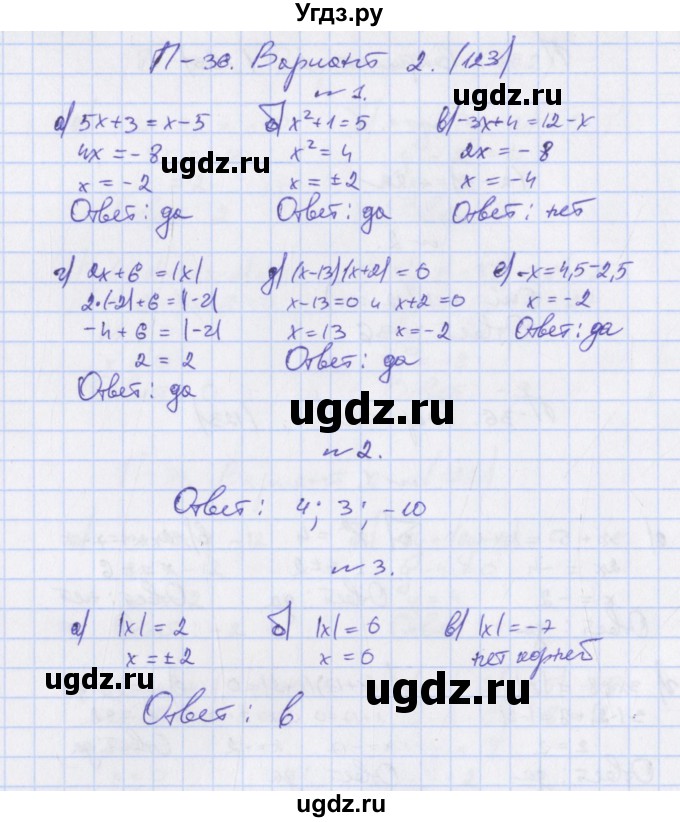 Угдз.ру
П-36. Вариант 2. (123)
№1.
а) 5x+3=x-5 б) x²+1=5 в) -3x+4=12-x
4x=-8 x²=4 2x=-8
x=-2 x=±2 x=-4
Ответ: да Ответ: да Ответ: нет
г) 2x+6=|x| д) (x-13)(x+2)=0 е) -x=4,5-2,5
2·(-2)+6=|-2| x-13=0 и x+2=0 x=-2
-4+6=|-2| x=13 x=-2 Ответ: да
2=2 Ответ: да
Ответ: да
№2.
Ответ: 4; 3; -10
№3.
а) |x|=2 б) |x|=0 в) |x|=-7
x=±2 x=0 нет корней
Ответ: в
ugdz.ru
ugdz.ru
ugdz.ru
ugdz.ru
ugdz.ru
ugdz.ru
ugdz.ru